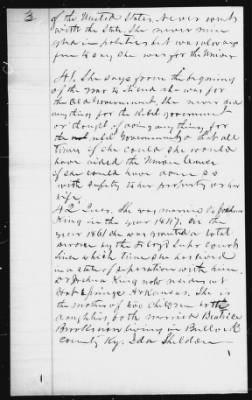 3
of the United States. Never went
with the State. She never mingled
in politics but was always
free to say she was for the Union
41. She says from the beginning
of the war to its end she was for
the old Government. She never did
anything for the Rebel government
or thought of doing anything for
the Rebel Government. But all
times if she could she would
have aided the Union Cause
if she could have done so
with safety to her property or her
life.
42 Ques. She was married to Joshua
King in the year 1847. In the
year 1861 she was granted a total
divorce by the
since which time she has lived
in a state of separation with him.
Dr Joshua King now resides at
Hot Springs Arkansas. She is
the mother of two children both
daughters, both married Beatrice
Brooks now living in Bullock
County Ky. Ida Sheldon